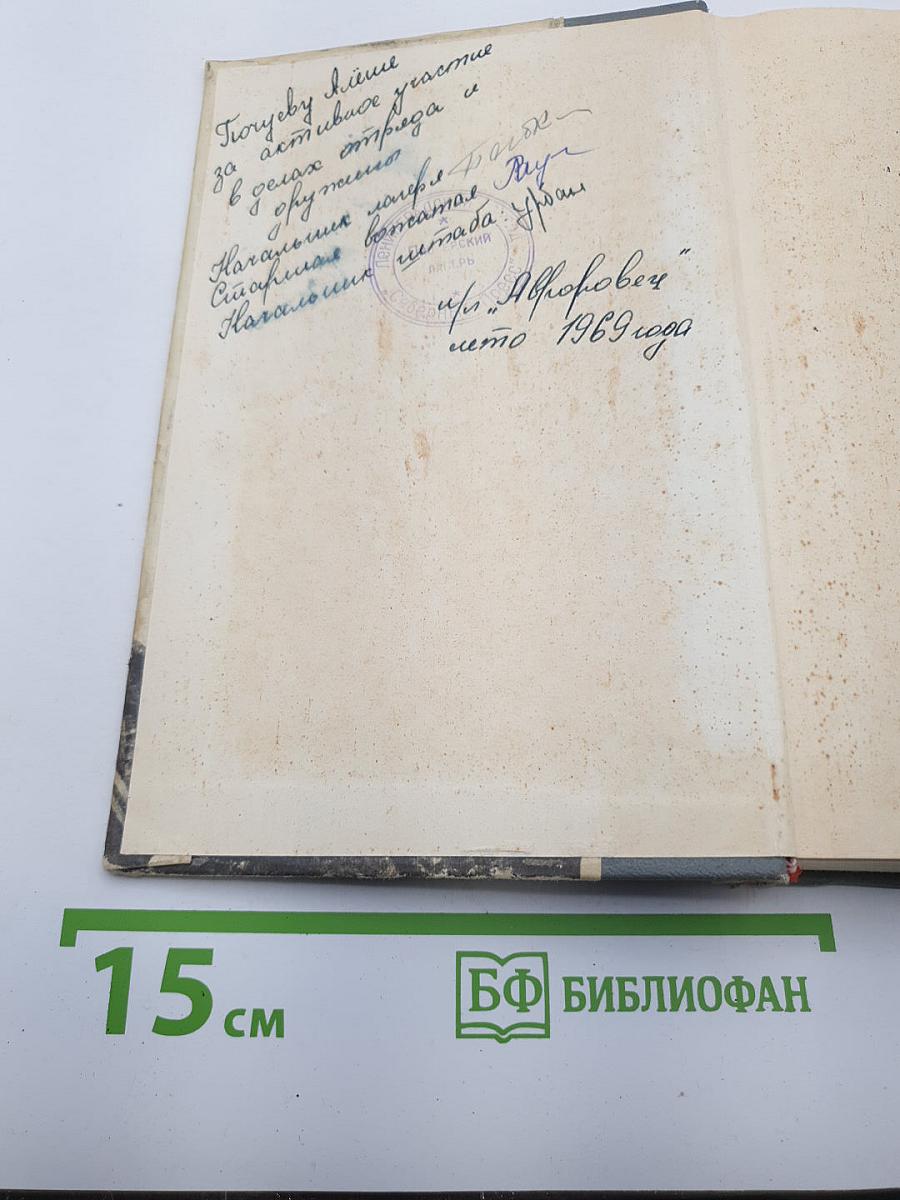 Почуеву Алёше
за активное участие
в делах отряда и
дружины
Начальник лагеря
Старшая вожатая
Начальник штаба: Урбан
п/л „Авроровец"
лето 1969 года
15 см
БФ БИБЛИОФАН